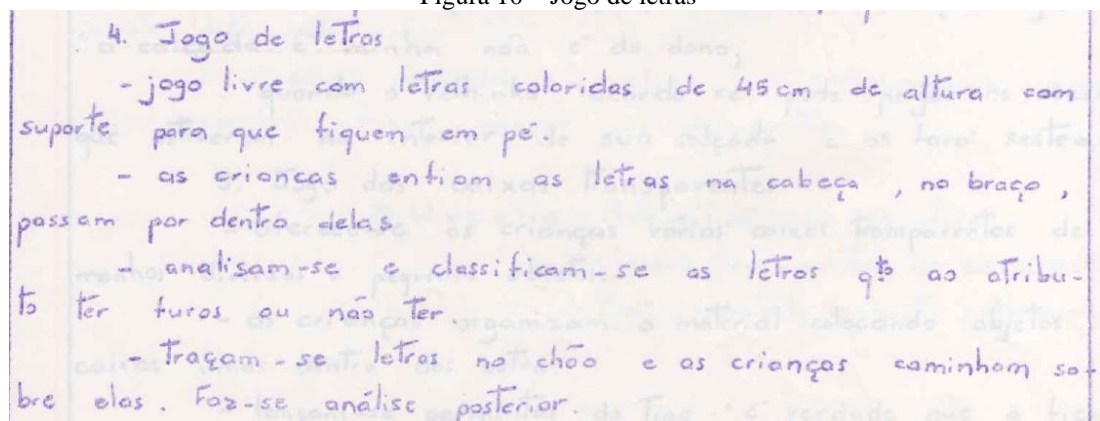 Figura 10 – Jogo de letras
4. Jogo de letras
- jogo livre com letras coloridas de 45 cm de altura com
suporte para que fiquem em pé.
- as crianças enfiam as letras na cabeça, no braço,
passam por dentro delas.
- analisam-se e classificam-se as letras qto ao atribu-
to ter furos ou não ter.
- Traçam-se letras no chão e as crianças caminham so-
bre elas. Faz-se análise posterior.